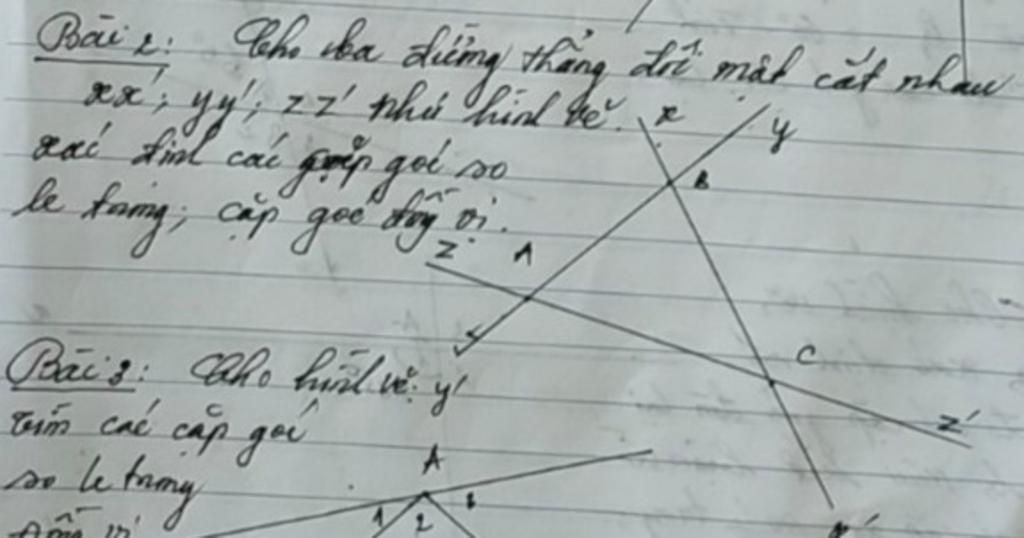 Bài 2: Cho ba đường thẳng đôi một cắt nhau
xx'; yy'; zz' như hình vẽ.
xác định các cặp góc so
le trong; cặp góc đồng vị.
x
y
B
z
A
C
z'
x'
y'
Bài 3: Cho hình vẽ:
tìm các cặp góc
so le trong
đồng vị
A
1
2